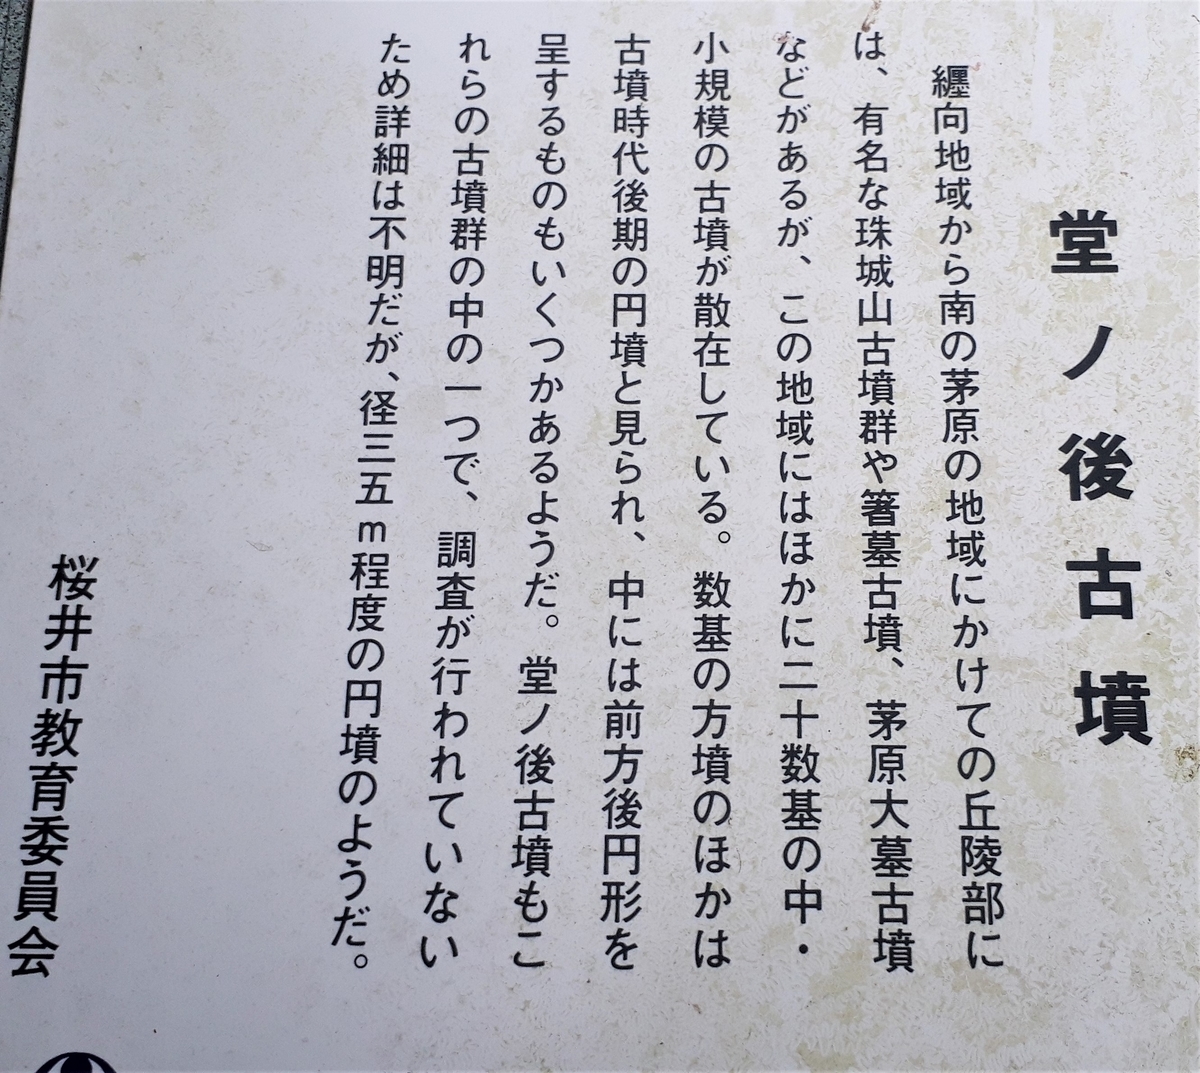 堂ノ後古墳
纒向地域から南の茅原の地域にかけての丘陵部に
は、有名な珠城山古墳群や箸墓古墳、茅原大墓古墳
などがあるが、この地域にはほかに二十数基の中・
小規模の古墳が散在している。数基の方墳のほかは
古墳時代後期の円墳と見られ、中には前方後円形を
呈するものもいくつかあるようだ。堂ノ後古墳もこ
れらの古墳群の中の一つで、調査が行われていない
ため詳細は不明だが、径三五m程度の円墳のようだ。
桜井市教育委員会